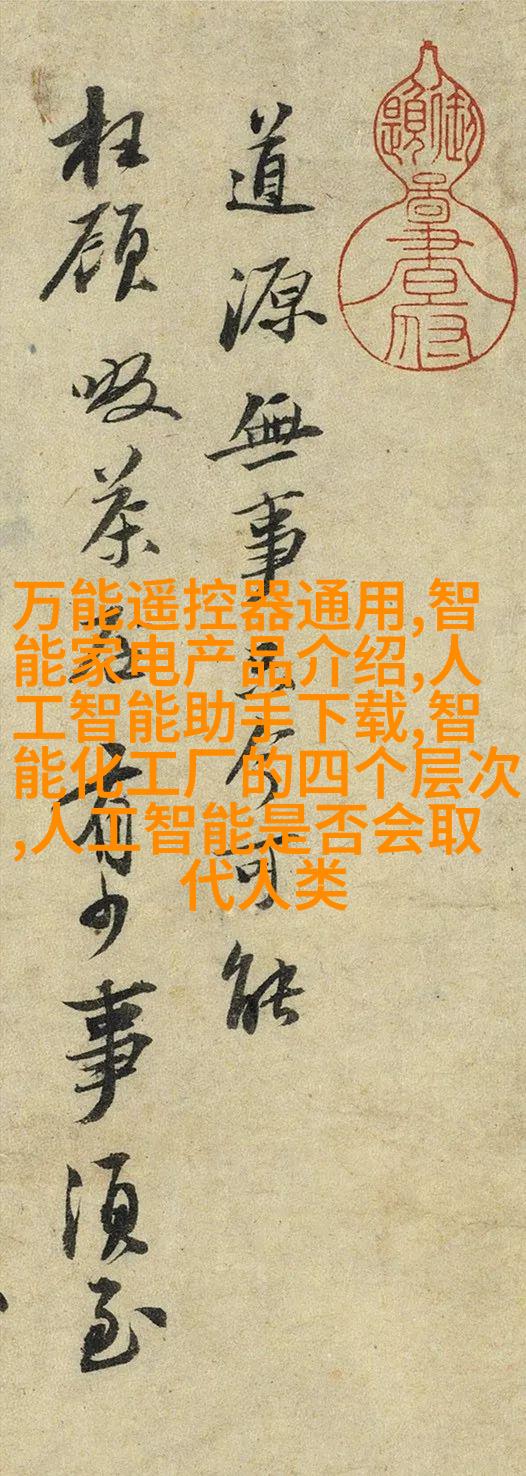 道源無事只今可能
枉顧啜茶否有少事須至
万能遥控器通用,智
能家电产品介绍,人
工智能助手下载,智
能化工厂的四个层次
,人工智能是否会取
代人类